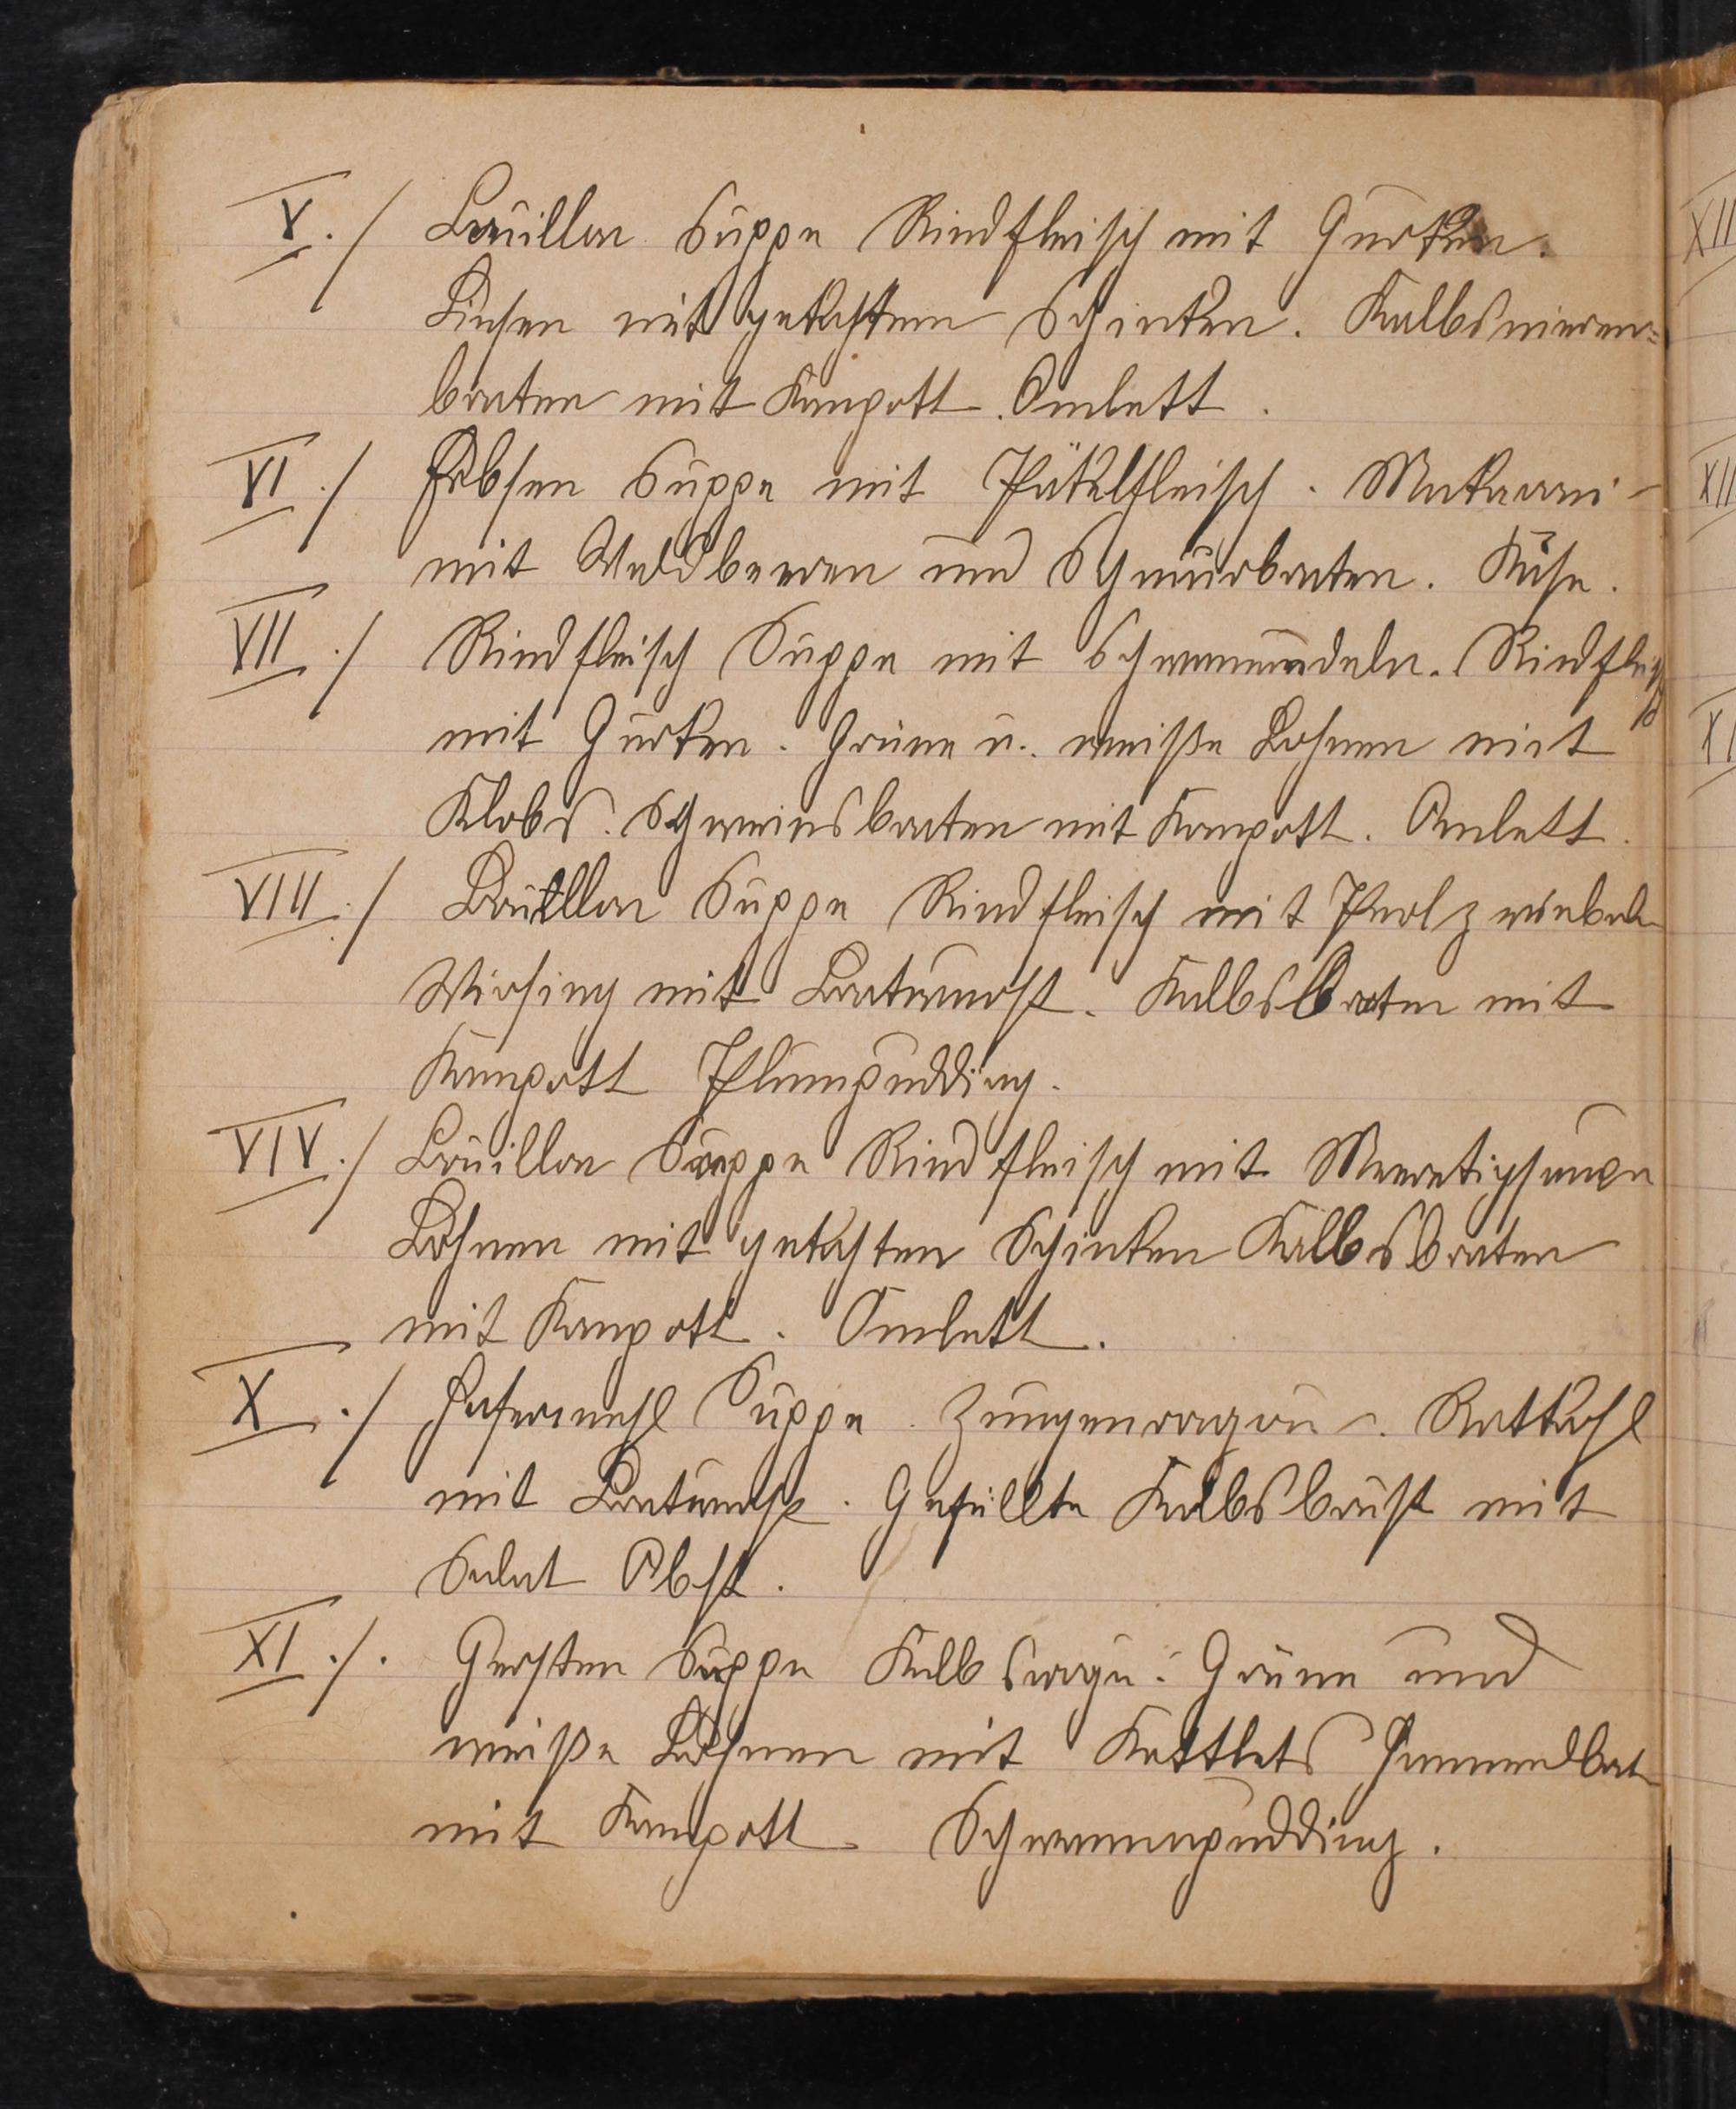 V./ Bouillon Suppe Rindfleisch mit Gurken.
Linsen mit gekochtem Schinken. Kalbsnieren=
braten mit Kompott. Omlett.
VI./ Erbsen Suppe mit Pökelfleisch. Makaroni
mit Waldbeeren und Schmorbraten. Käse.
VII./ Rindfleisch Suppe mit Schwammnudeln. Rindfleisch
mit Gurken. Grüne u. weiße Bohnen mit
Klobs. Schweinsbraten mit Kompott. Omlett.
VIII./ Bouillon Suppe Rindfleisch mit Perlzwiebeln
Wirsing mit Bratwurst. Kalbsbraten mit
Kompott Plumpudding.
VIV./ Bouillon Suppe Rindfleisch mit
Bohnen mit gekochten Schinken Kalbsbraten
mit Kompott. Omlett.
X./ Hafermehl Suppe. Zungenragou. Rottkohl
mit Bratwurst. Gefüllte Kalbsbrust mit
Salat Obst.
XI./. Gersten Suppe Kalbsragu. Grüne und
weiße Bohnen mit Kottlets Hammelbrat
mit Kompott. Schwammpudding.
XII
XII
XI